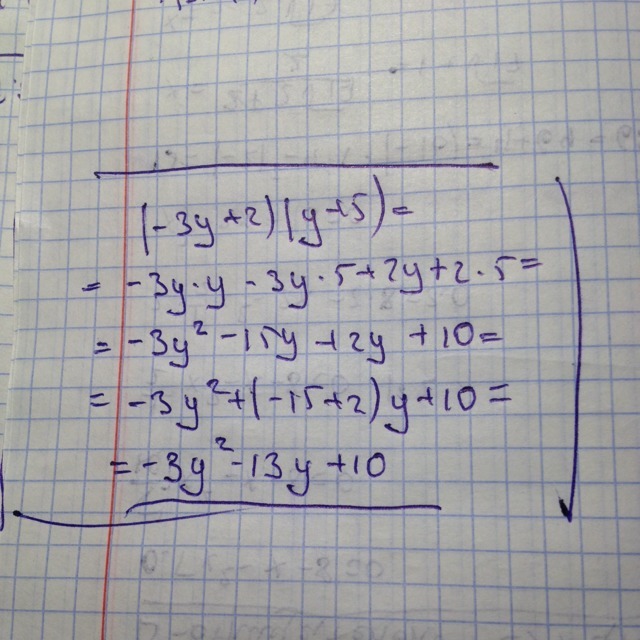 (-3y+2)(y+5)=
= -3y·y - 3y·5+2y+2·5=
= -3y² -15y +2y +10=
= -3y²+(-15+2)y+10=
= -3y²-13y+10